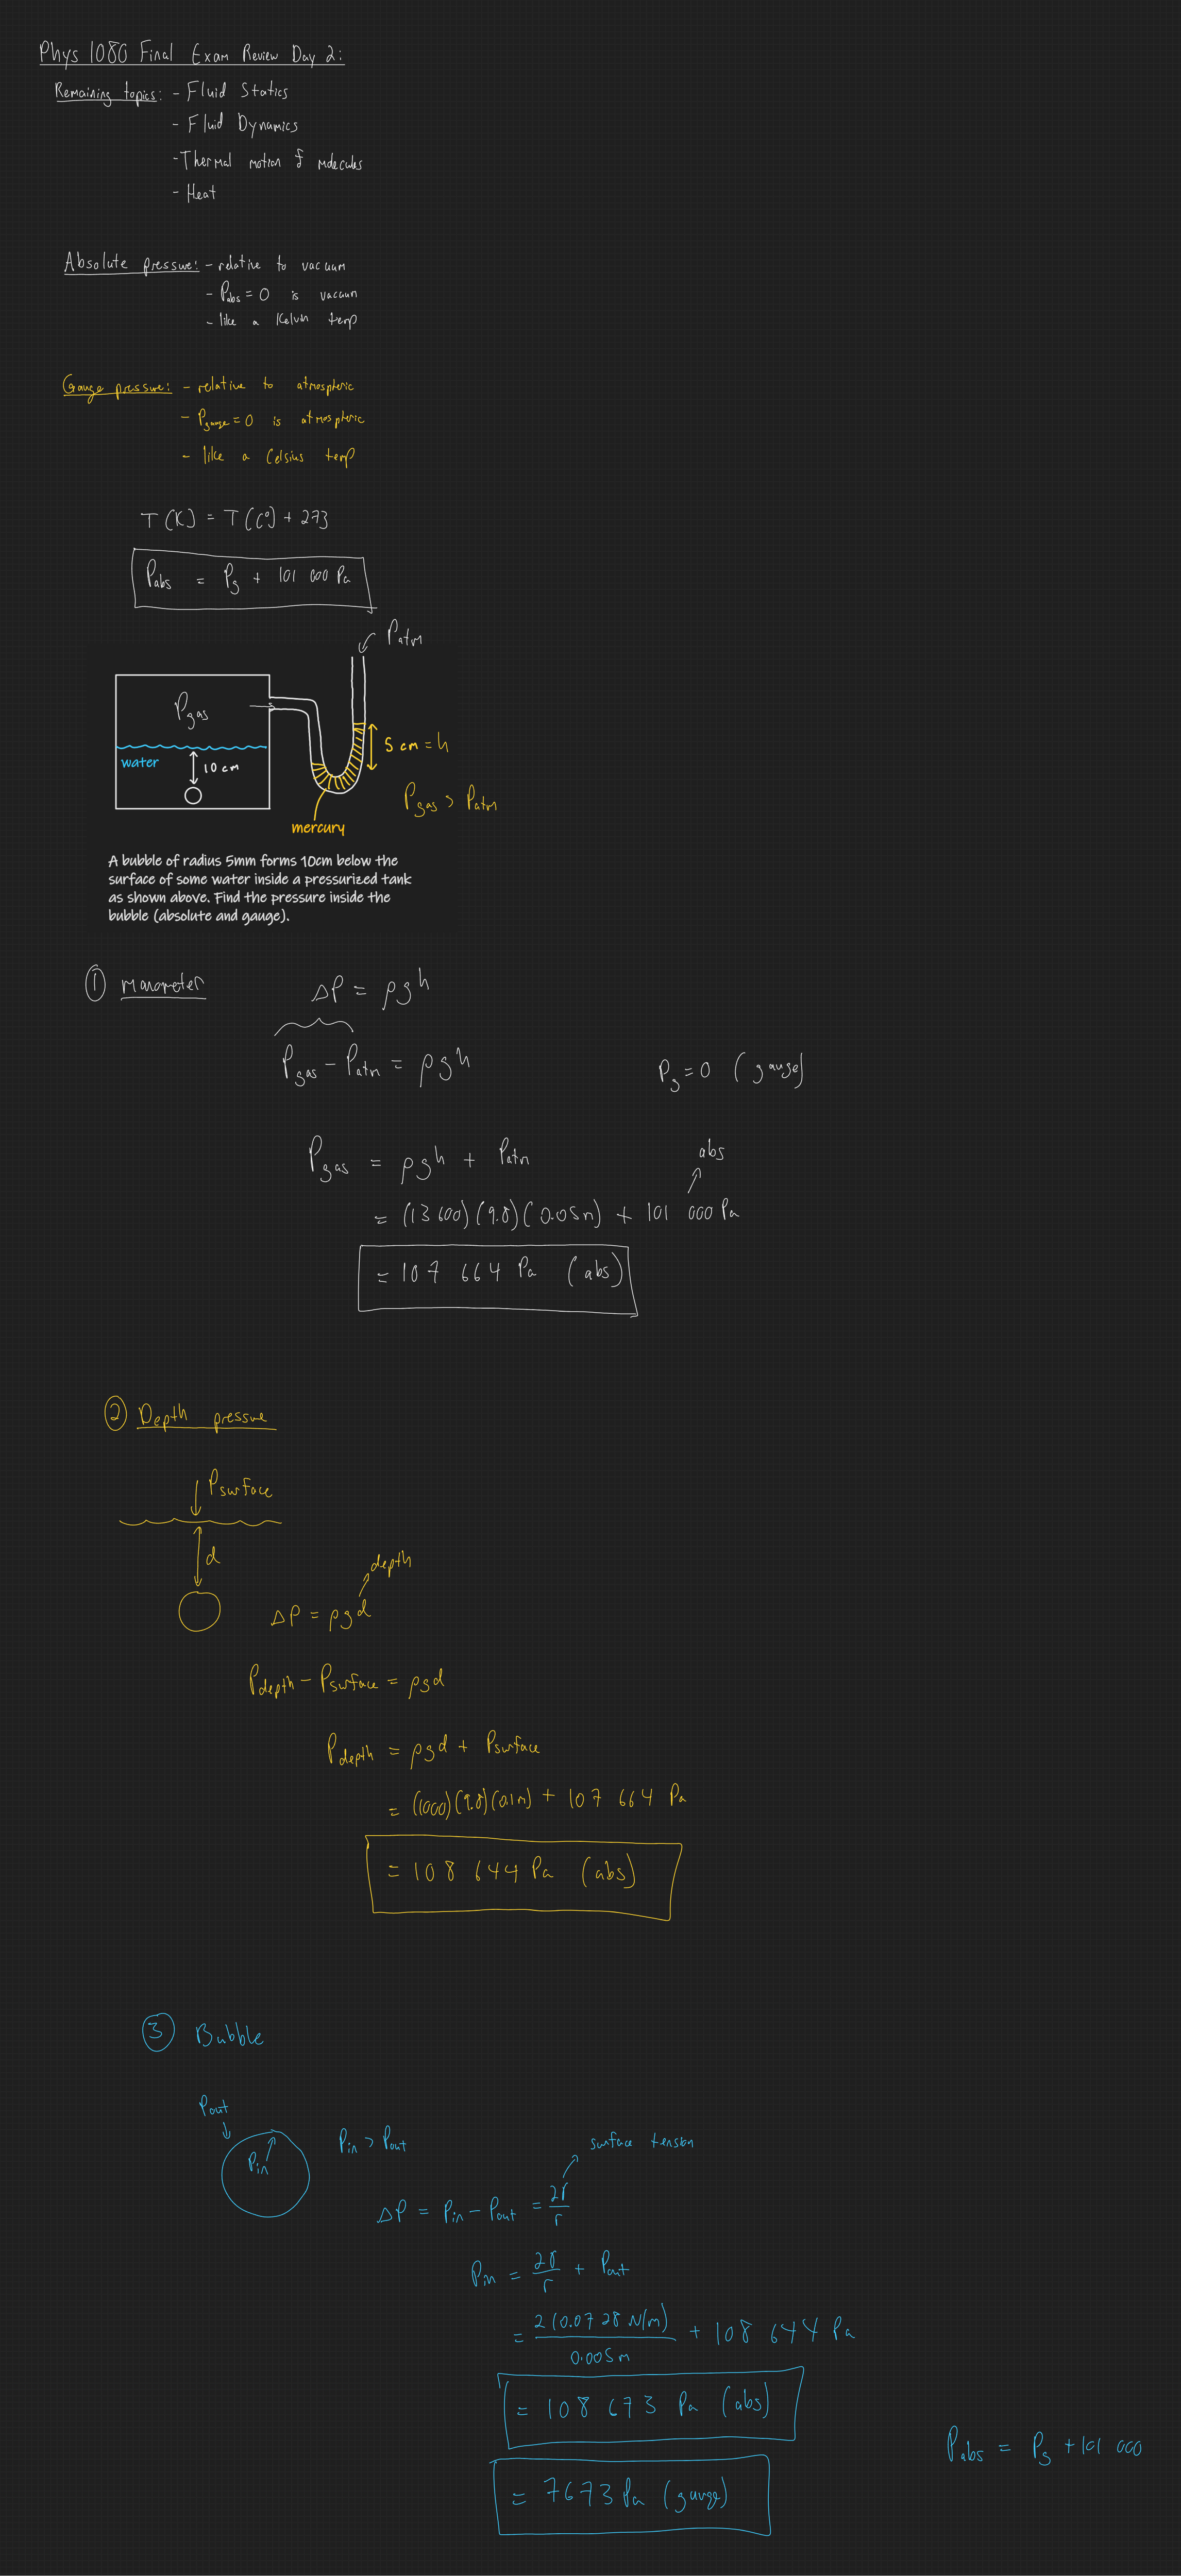 Phys 1080 Final Exam Review Day 2:
Remaining topics: - Fluid Statics
- Fluid Dynamics
- Thermal motion of molecules
- Heat
Absolute pressure: - relative to vacuum
- Pabs = 0 is vacuum
- like a Kelvin temp
Gauge pressure: - relative to atmospheric
- Pgauge = 0 is atmospheric
- like a Celsius temp
T (K) = T (C°) + 273
Pabs = Pg + 101 000 Pa
Patm
Pgas
5 cm = h
water
10 cm
Pgas > Patm
mercury
A bubble of radius 5mm forms 10cm below the
surface of some water inside a pressurized tank
as shown above. Find the pressure inside the
bubble (absolute and gauge).
① manometer
ΔP = ρgh
Pgas - Patm = ρgh
Pg = 0 (gauge)
Pgas = ρgh + Patm
abs
= (13 600)(9.8)(0.05m) + 101 000 Pa
= 107 664 Pa (abs)
② Depth pressure
Psurface
d
depth
ΔP = ρgd
Pdepth - Psurface = ρgd
Pdepth = ρgd + Psurface
= (1000)(9.8)(0.1m) + 107 664 Pa
= 108 644 Pa (abs)
③ Bubble
Pout
Pin
Pin > Pout
surface tension
ΔP = Pin - Pout = 2γ/r
Pin = 2γ/r + Pout
= 2(0.0728 N/m)/0.005m + 108 644 Pa
= 108 673 Pa (abs)
Pabs = Pg + 101 000
= 7673 Pa (gauge)